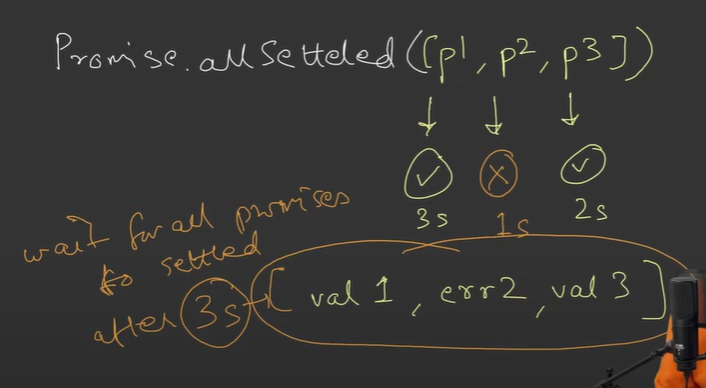 Promise.allSetteled([p1, p2, p3])
3s 1s 2s
wait for all promises
to settled
after 3s → [ val 1, err2, val 3 ]